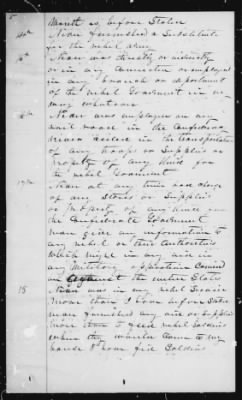 5
Month as before Stated
14th Never furnished a Substitute
for the rebel army
15th Never was directly or indirectly
or in any connected or employed
in any branch or department
of the rebel Goverment in no
way whatever
16th Never was employed on any
rail road in the Confederacy
Never aided in the transportation
of any troops or Supplies or
property of any kind for
the rebel Goverment
17th Never at any time had charge
of any Stores or Supplies
or property of any kind for
the Confederate Goverment
Never give any information to
any rebel or their Authorities
which might in any aid in
any Military operation
against the united States
18 Never was in any rebel Service
More than I have before Stated
Never furnished any aid or Supplies
More than to feed rebel Soldiers
when they would come to my
house & hour fed Soldiers
1
1